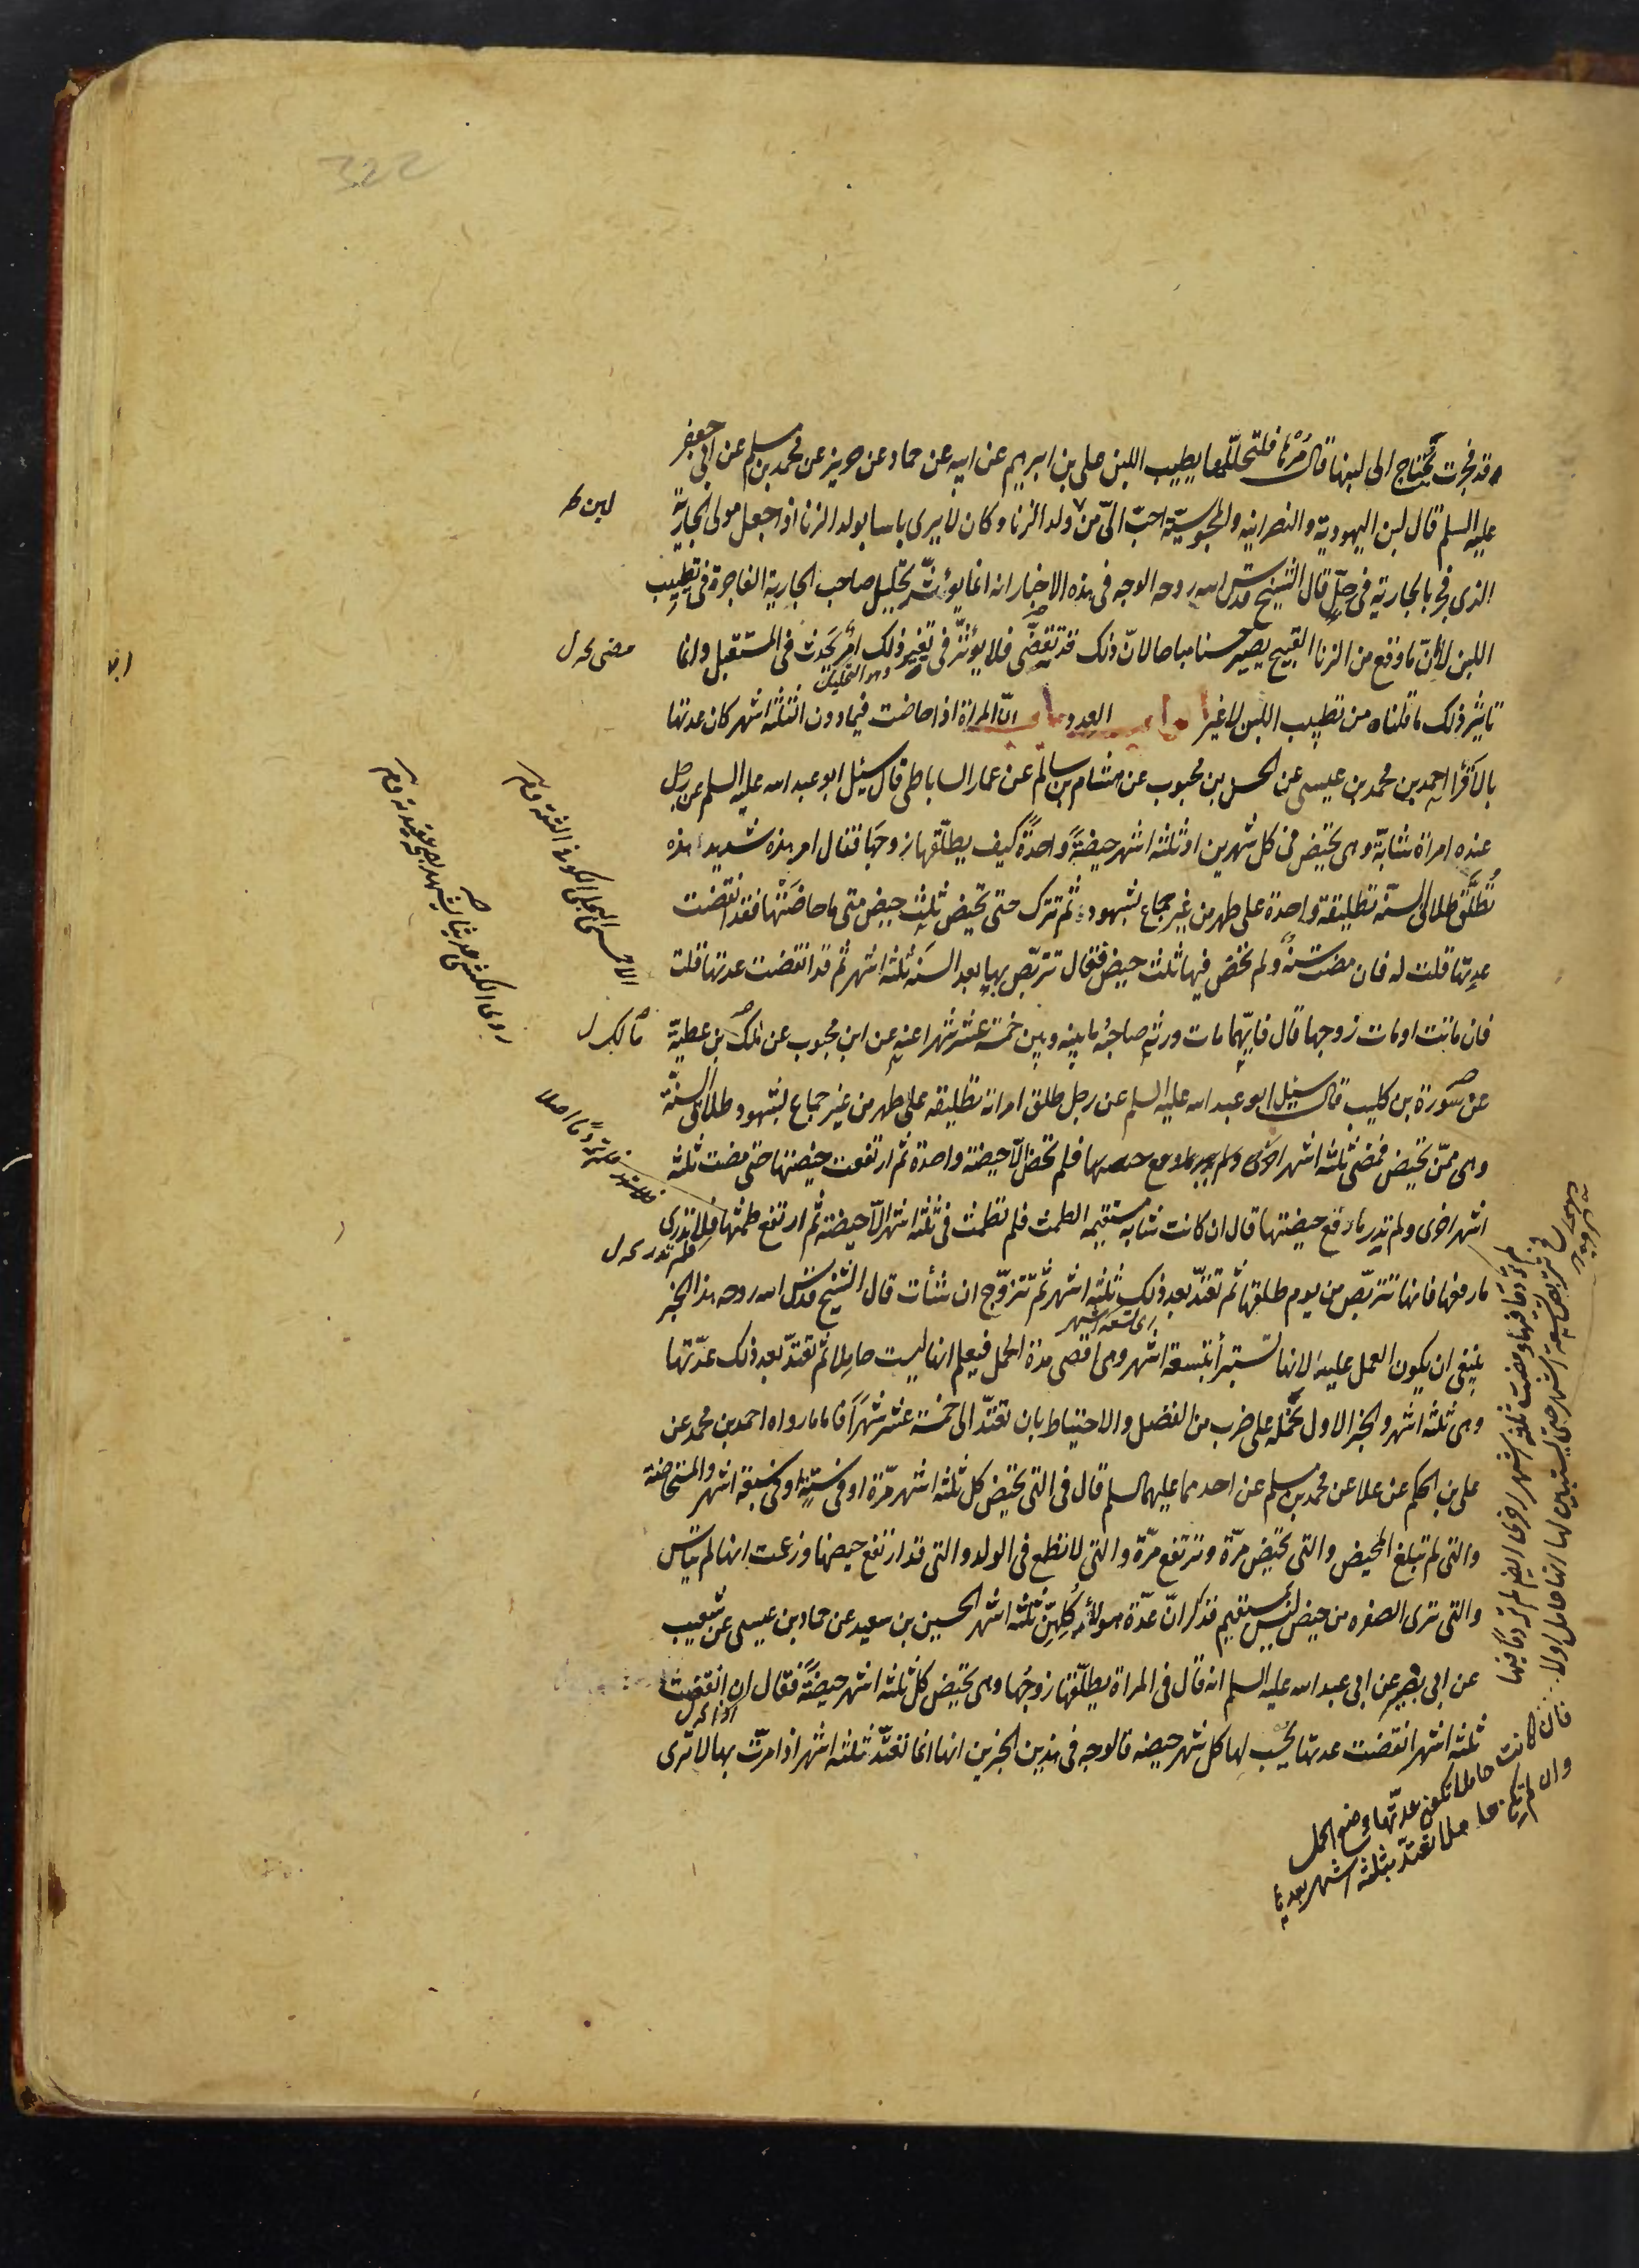 322
وقد فجرت تحتاج الى لبنها قال مُرْها فلتحللها يطيب اللبن على بن ابرهيم عن ابيه عن حماد عن حريز عن محمد بن مسلم عن ابى جعفر
عليه السلم قال لبن اليهودية والنصرانية والمجوسية احبّ الىّ من ولد الزنا وكان لا يرى باسا بولد الزنا اذا جعل مولى الجارية
لبن ظ
الذى فجر بالجارية فى حلّ قال الشيخ قدس الله روحه الوجه فى هذه الاخبار انه انما يؤثّر تحليل صاحب الجارية الفاجرة فى تطييب
اللبن لا انّ ما وقع من الزنا القبيح يصير حسنا مباحا لانّ ذلك قد تقضّى فلا يؤثّر فى تغيير ذلك امر يَحدث فى المستقبل وانما
مضى
وهو التحليل
تاثير ذلك ما قلناه من تطييب اللبن لا غير ابواب العدد باب انّ المراة اذا حاضت فيما دون الثلثة اشهر كان عدتها
بالاقراء احمد بن محمد بن عيسى عن الحسن بن محبوب عن هشام بن سالم عن عمار الساباطى قال سئل ابو عبد الله عليه السلم عن رجل
عنده امراة شابّة وهى تحيض فى كل شهرين او ثلثة اشهر حيضةً واحدةً كيف يطلّقها زوجها فقال امر هذه شديد هذه
تُطلَّق طلاق السنّة تطليقة واحدة على طهر من غير جماع بشهود ثم تترك حتى تحيض ثلث حيض متى ما حاضَتْها فقد انقضت
عدتها قلت له فان مضت سنةٌ ولم تحض فيها ثلث حيض فقال تتربّص بها بعد السنة ثلثة اشهر ثم قد انقضت عدتها قلت
فان ماتت او مات زوجها قال فايّهما مات ورثه صاحبُه ما بينه وبين خمسة عشر شهرا عنه عن ابن محبوب عن ملك بن عطيّة
مالك ل
عن سورة بن كليب قال سئل ابو عبد الله عليه السلم عن رجل طلق امراته تطليقة على طهر من غير جماع بشهود طلاق السنّة
وهى ممّن تحيض فمضى ثلثة اشهر فلم تحض الّا حيضة واحدة ثم ارتفعت حيضتها حتى مضت ثلثة
اشهر اخرى ولم تدر ما رفع حيضتها قال ان كانت شابة مستقيمة الطمث فلم تطمث فى ثلثة اشهر الّا حيضة ثم ارتفع طمثها فلا تدرى
ما رفعها فانها تتربّص من يوم طلقها ثم تعتدّ بعد ذلك ثلثة اشهر ثم تتزوّج ان شأت قال الشيخ قدس الله روحه هذا الخبر
ينبغى ان يكون العمل عليه لانها تستبرأ بتسعة اشهر وهى اقصى مدة الحمل فيعلم انها ليست حاملا ثم تعتدّ بعد ذلك عدّتها
وهى ثلثة اشهر والخبر الاول نحمله على ضرب من الفضل والاحتياط بان تعتدّ الى خمسة عشر شهرًا فاما ما رواه احمد بن محمد عن
على بن الحكم عن علا عن محمد بن مسلم عن احدهما عليهما السلم قال فى التى تحيض كل ثلثة اشهر مرّة او فى ستة او فى سبعة اشهر والمستحاضة
والتى لم تبلغ المحيض والتى تحيض مرّة وترتفع مرّة والتى لا تطمع فى الولد والتى قد ارتفع حيضها وزعمت انها لم تياس
والتى ترى الصفرة من حيض ليس بمستقيم فذكر انّ عدّة هولاء كلهنّ ثلثة اشهر الحسين بن سعيد عن حماد بن عيسى عن شعيب
عن ابى بصير عن ابى عبد الله عليه السلم انه قال فى المراة يطلّقها زوجُها وهى تحيض كلّ ثلثة اشهر حيضةً فقال ان انقضت
ثلثة اشهر انقضت عدتها يحسب لها كل شهر حيضة فالوجه فى هذين الخبرين انها انما تعتدّ ثلثة اشهر اذا مرّت بها لا ترى
لم تر دما فيها ومضت ثلثة اشهر اخرى ايضا لم تر دما فيها
فتربص تسعة اشهر حتى يستبين لها انها حامل اولا
فان كانت حاملا تكون عدّتها وضع الحمل
وان لم تكن حاملا تعتدّ بثلثة اشهر بعدها